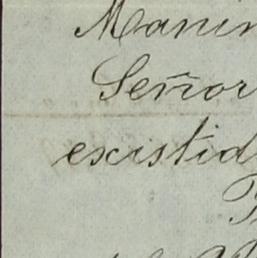 Manin
Señor
escistid